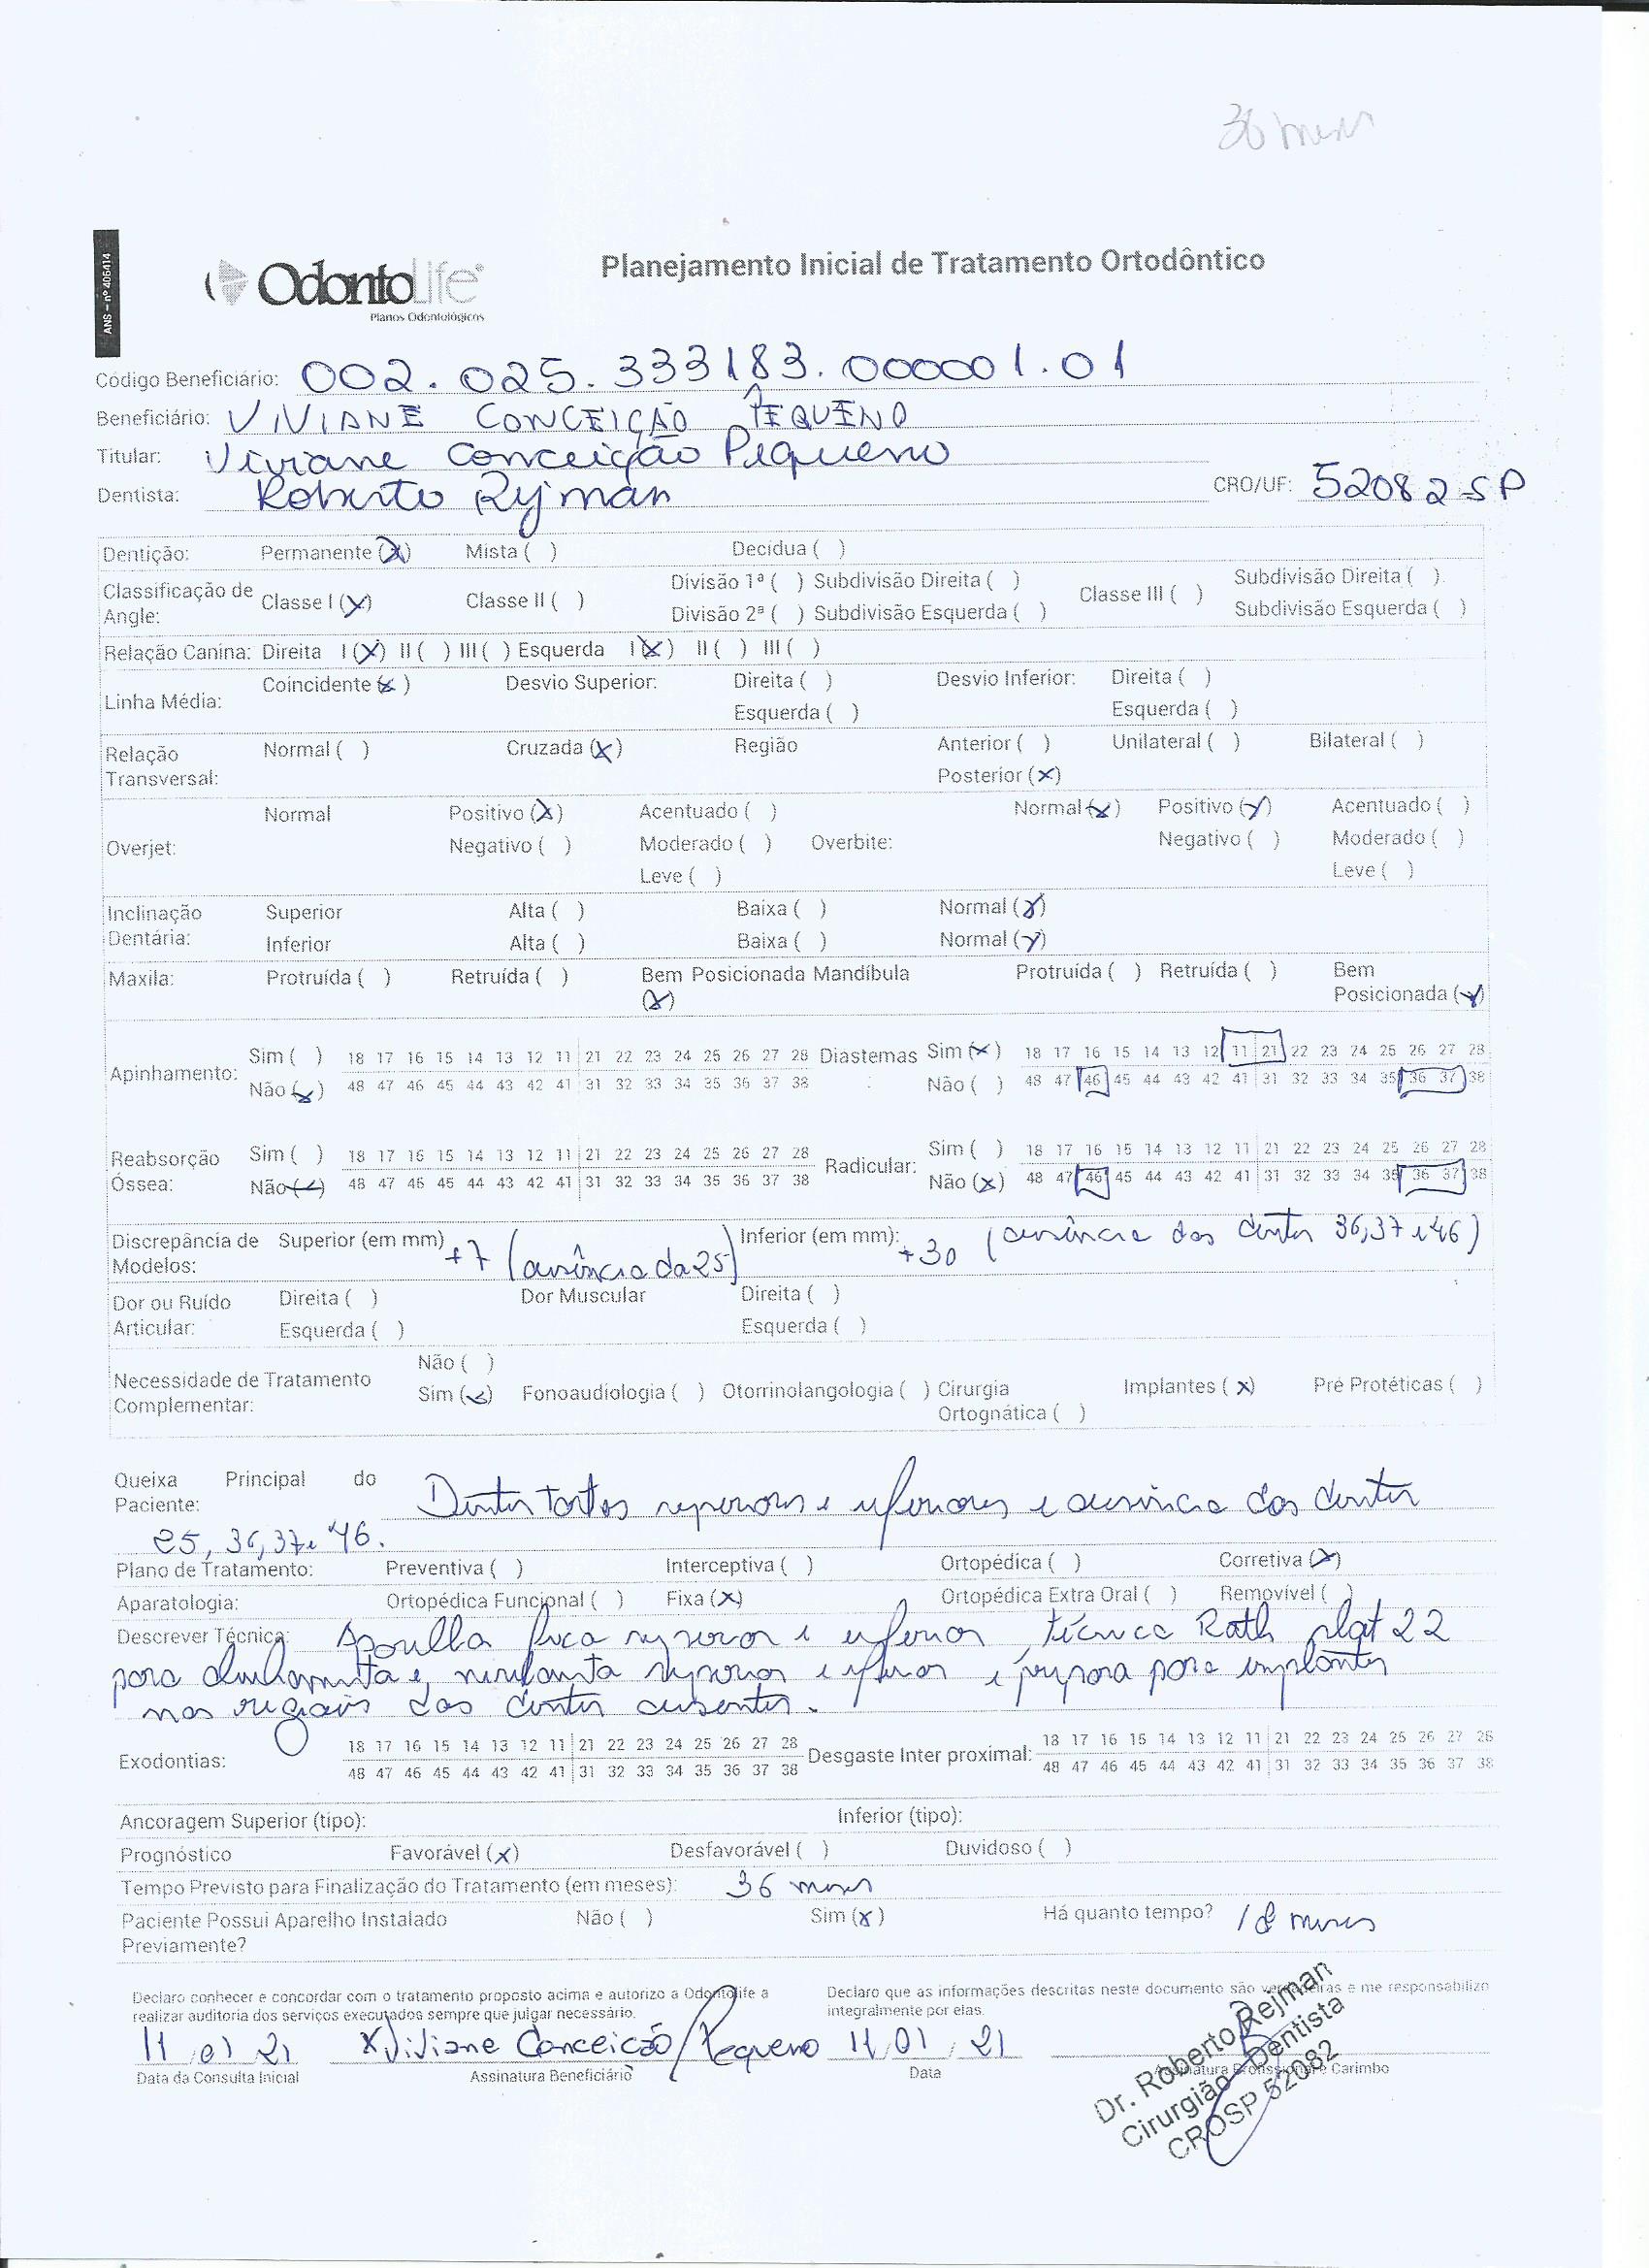 36 meses
ANS - nº 406414
OdontoLife
Planos Odontológicos
Planejamento Inicial de Tratamento Ortodôntico
Código Beneficiário: 002.025.333183.000001.01
Beneficiário: VIVIANE CONCEIÇÃO PEQUENO
Titular: Viviane Conceição Pequeno
Dentista: Roberto Rejman CRO/UF: 52082 SP
Dentição: Permanente (x) Mista ( ) Decídua ( )
Classificação de Angle: Classe I (x) Classe II ( ) Divisão 1ª ( ) Subdivisão Direita ( ) Classe III ( ) Subdivisão Direita ( )
Divisão 2ª ( ) Subdivisão Esquerda ( ) Subdivisão Esquerda ( )
Relação Canina: Direita I (x) II ( ) III ( ) Esquerda I (x) II ( ) III ( )
Linha Média: Coincidente (x) Desvio Superior: Direita ( ) Desvio Inferior: Direita ( )
Esquerda ( ) Esquerda ( )
Relação Transversal: Normal ( ) Cruzada (x) Região Anterior ( ) Unilateral ( ) Bilateral ( )
Posterior (x)
Normal Positivo (x) Acentuado ( ) Normal (x) Positivo (x) Acentuado ( )
Overjet: Negativo ( ) Moderado ( ) Overbite: Negativo ( ) Moderado ( )
Leve ( ) Leve ( )
Inclinação Dentária: Superior Alta ( ) Baixa ( ) Normal (x)
Inferior Alta ( ) Baixa ( ) Normal (x)
Maxila: Protruída ( ) Retruída ( ) Bem Posicionada (x) Mandíbula Protruída ( ) Retruída ( ) Bem Posicionada (x)
Apinhamento: Sim ( ) 18 17 16 15 14 13 12 11 21 22 23 24 25 26 27 28 Diastemas Sim (x) 18 17 16 15 14 13 12 11 21 22 23 24 25 26 27 28
Não (x) 48 47 46 45 44 43 42 41 31 32 33 34 35 36 37 38 Não ( ) 48 47 46 45 44 43 42 41 31 32 33 34 35 36 37 38
Reabsorção Óssea: Sim ( ) 18 17 16 15 14 13 12 11 21 22 23 24 25 26 27 28 Radicular: Sim ( ) 18 17 16 15 14 13 12 11 21 22 23 24 25 26 27 28
Não (x) 48 47 46 45 44 43 42 41 31 32 33 34 35 36 37 38 Não (x) 48 47 46 45 44 43 42 41 31 32 33 34 35 36 37 38
Discrepância de Modelos: Superior (em mm) +7 (ausência da 25) Inferior (em mm): +30 (ausência dos dentes 36, 37 e 46)
Dor ou Ruído Articular: Direita ( ) Dor Muscular Direita ( )
Esquerda ( ) Esquerda ( )
Não ( )
Necessidade de Tratamento Complementar: Sim (x) Fonoaudiologia ( ) Otorrinolangologia ( ) Cirurgia Ortognática ( ) Implantes (x) Pré Protéticas ( )
Queixa Principal do Paciente: Dentes tortos superiores e inferiores e ausência dos dentes
25, 36, 37 e 46.
Plano de Tratamento: Preventiva ( ) Interceptiva ( ) Ortopédica ( ) Corretiva (x)
Aparatologia: Ortopédica Funcional ( ) Fixa (x) Ortopédica Extra Oral ( ) Removível ( )
Descrever Técnica: Aparelho fixo superior e inferior, técnica Roth slot 22
para alinhamento e nivelamento superior e inferior e preparo para implantes
nas regiões dos dentes ausentes.
Exodontias: 18 17 16 15 14 13 12 11 21 22 23 24 25 26 27 28 Desgaste Inter proximal: 18 17 16 15 14 13 12 11 21 22 23 24 25 26 27 28
48 47 46 45 44 43 42 41 31 32 33 34 35 36 37 38 48 47 46 45 44 43 42 41 31 32 33 34 35 36 37 38
Ancoragem Superior (tipo): Inferior (tipo):
Prognóstico Favorável (x) Desfavorável ( ) Duvidoso ( )
Tempo Previsto para Finalização do Tratamento (em meses): 36 meses
Paciente Possui Aparelho Instalado Previamente? Não ( ) Sim (x) Há quanto tempo? 18 meses
Declaro conhecer e concordar com o tratamento proposto acima e autorizo a Odontolife a
realizar auditoria dos serviços executados sempre que julgar necessário.
Declaro que as informações descritas neste documento são verdadeiras e me responsabilizo
integralmente por elas.
11 01 21 x Viviane Conceição Pequeno 11 01 21
Data da Consulta Inicial Assinatura Beneficiário Data Assinatura Profissional e Carimbo
Dr. Roberto Rejman
Cirurgião-Dentista
CROSP 52082